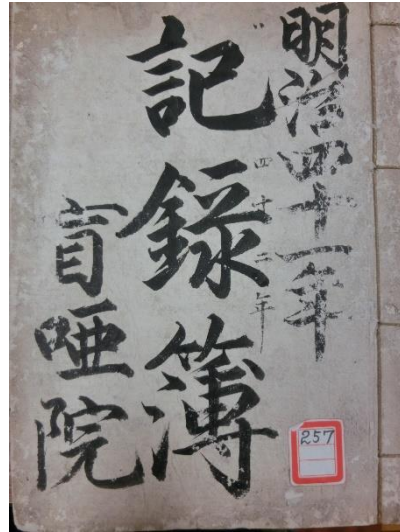 明治四十一年
四十二年
記録簿
盲唖院
257